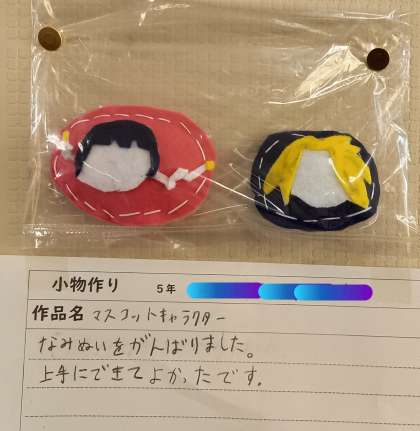 小物作り 5年
作品名 マスコットキャラクター
なみぬいをがんばりました。
上手にできてよかったです。